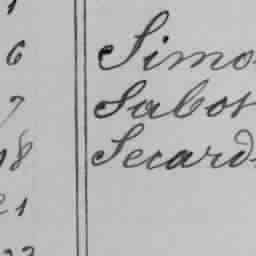 6 Simo
7 Sabot
18 Secard
21